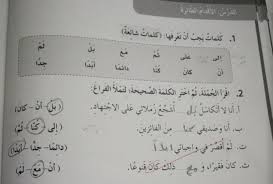 1. كلمات يجب أن تعرفها: (كلمات شائعة)
إلى على مع بل ثم
أن كان كنا دائما أبدا جدا
2. اقرأ الجملة، ثم اختر الكلمة الصحيحة؛ لتملأ الفراغ:
أ. أنا لا أتكاسل بل أشجع زملائي على الاجتهاد. (بل - أن - كان)
ب. أنا وصديقي من الفائزين. (إلى - كنا - ثم)
ت. لم أقصر في واجباتي أبدا (دائما - جدا - أبدا)
ث. كان فقيرا، و ذلك كان قنوعا. (أن - مع - ثم)